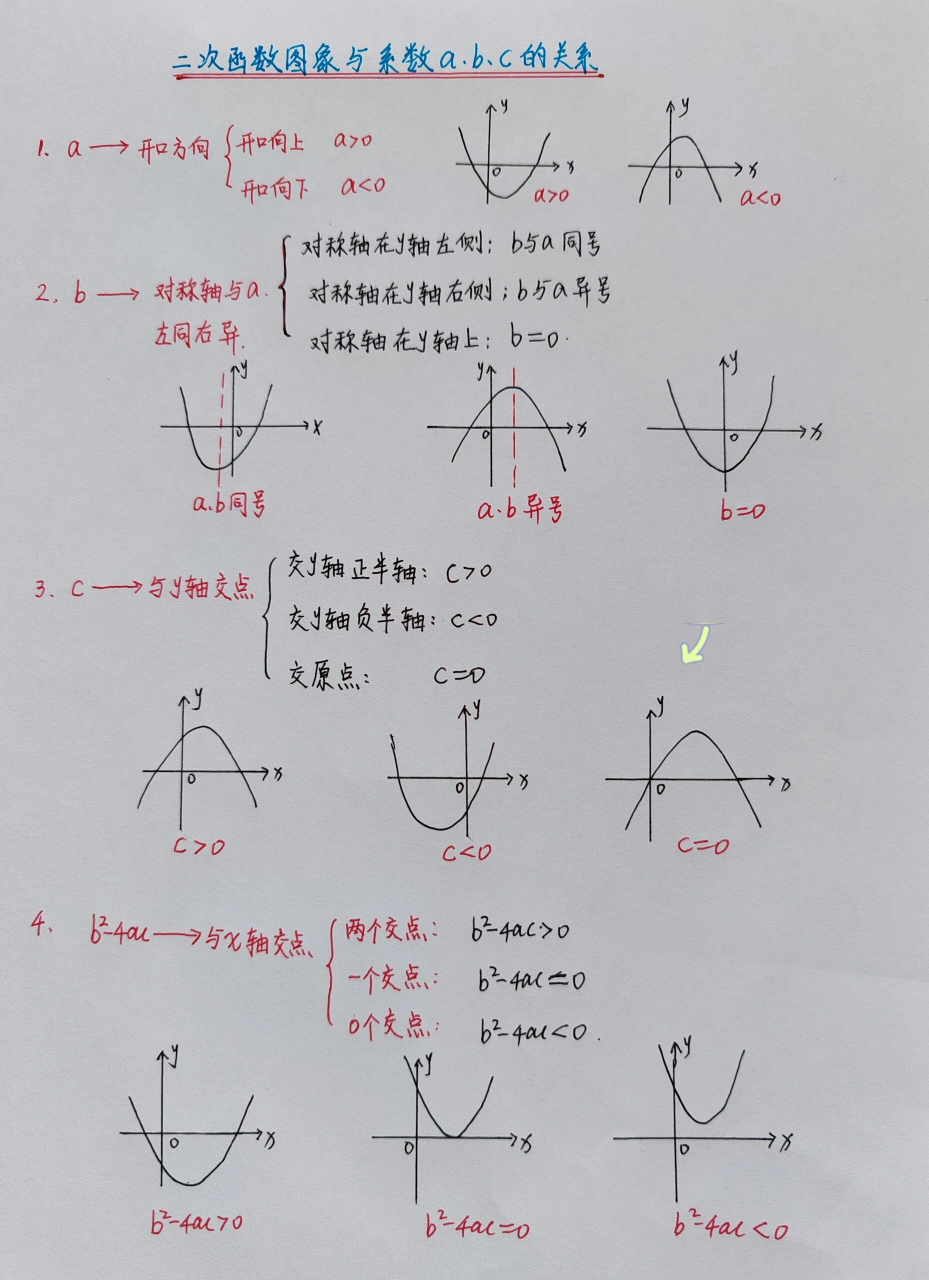 二次函数图象与系数a.b、c的关系
1. a → 开口方向
开口向上 a>0
开口向下 a<0
y
x
0
a>0
y
x
0
a<0
2. b → 对称轴与a.
左同右异.
对称轴在y轴左侧: b与a同号
对称轴在y轴右侧; b与a异号
对称轴在y轴上: b=0.
y
x
0
a.b同号
y
x
0
a.b异号
y
x
0
b=0
3. c → 与y轴交点
交y轴正半轴: c>0
交y轴负半轴: c<0
交原点: c=0
y
x
0
c>0
y
x
0
c<0
y
x
0
c=0
4. b²-4ac → 与x轴交点
两个交点: b²-4ac>0
一个交点: b²-4ac=0
0个交点: b²-4ac<0.
y
x
0
b²-4ac>0
y
x
0
b²-4ac=0
y
x
0
b²-4ac<0